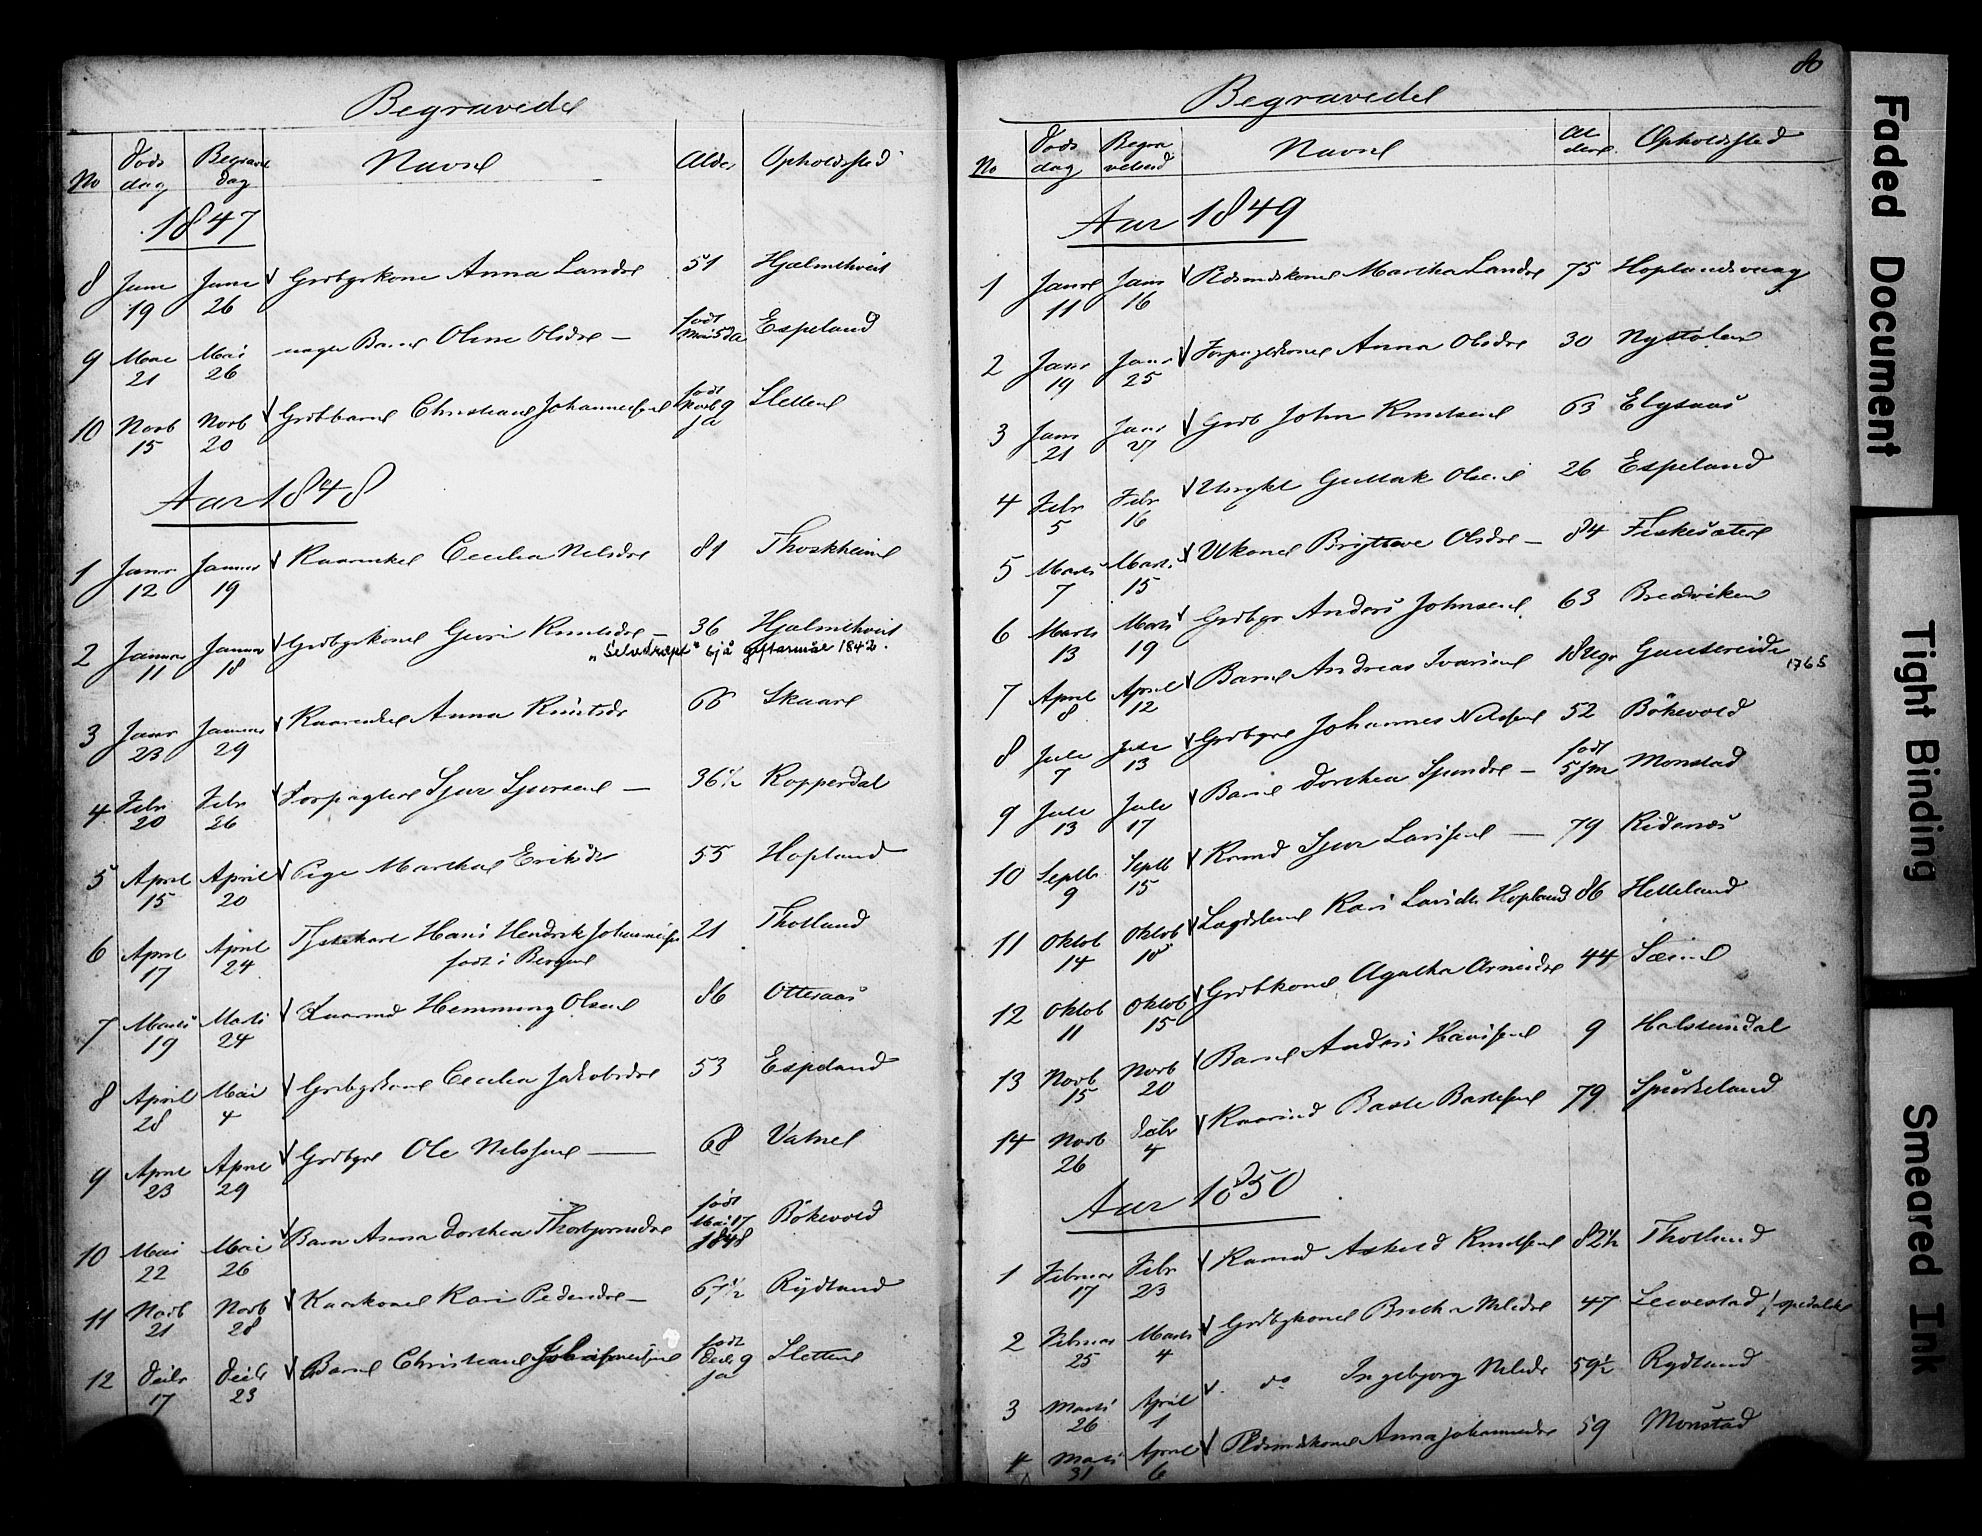 Begravede
No Døds dag Begrav dag Navn Alder Opholdssted
1847
8 Juni 19 Juni 26 Grdbrkone Anna Larsdr 51 Hjelmtveit
9 Mai 21 Mai 26 Barn Oline Olsdr — født Mai 5 Espeland
10 Novb 15 Novb 20 Grdbbarn Christian Johannessen født Novb 9 Sletten
Aar 1848
1 Janr 12 Januar 19 Kaarenke Cecilia Nelsdr 81 Thoskheim
2 Januar 11 Januar 18 Grdbrkone Guri Knutsdr — 36 Hjelmtveit
"Selvdræpt" gjftermål 1842.
3 Janr 23 Januar 29 Kaarenke Anna Knutsdr 66 Skaar
4 Febr 20 Febr 26 Forpagter Sjur Sjursen — 36½ Kopperdal
5 April 15 April 20 Pige Martha Eriksdr 55 Hopland
6 April 17 April 24 Hans Hendrik Johannessen 21 Thotland
født i Bergen
7 Marts 19 Marts 24 Kaarmd Hemming Olsen 86 Ottesaas
8 April 28 Mai 4 Grdbrkone Cecilia Jakobsdr 53 Espeland
9 April 23 April 29 Grdbgr Ole Nelssen — 68 Vatne
10 Mai 22 Mai 26 Barn Anna Dorthea Thorbjørnsdr født Mai 17 1848 Bökevold
11 Novb 21 Novb 28 Kaarkone Kari Pedersdr — 67½ Rydland
12 Decbr 17 Decb 23 Barn Christian Johannessen født Decb 9 Sletten
86
Begravede
No Døds dag Begra velsesd Navn Al deren Opholdssted
Aar 1849
1 Janr 11 Janr 16 Pldsmdskone Martha Larsdr 75 Hoplandsvaag
2 Janr 19 Janr 25 Forpagterkone Anna Olsdr 30 Nystölen
3 Janr 21 Janr 27 Grdb John Knutsen 63 Elysaas
4 Febr 5 Febr 16 Ungkl Gullak Olsen 26 Espeland
5 Marts 7 Marts 15 Kone Brytteve Olsdr — 84 Fiskesæter
6 Marts 13 Marts 19 Grdbgr Anders Johnsen 63 Bredviken
7 April 8 April 12 Barn Andreas Ivarsen 18 Ugr Guntereide 1765
8 Juli 7 Juli 13 Grdbgr Johannes Nilssen 52 Bökevold
9 Juli 13 Juli 17 Barn Dorthea Sjursdr — født Monstad
10 Septb 9 Septb 15 Kaarmd Sjur Larssen — 79 Ridenæs
11 Oktob 14 Oktob 18 Lægdslem Kari Larsdr Hopland 86 Helleland
12 Oktob 11 Oktob 15 Grdbkone Agatha Arnesdr 44 Sæim
13 Novb 15 Novb 20 Barn Anders Hanssen 9 Halsteindal
14 Novb 26 Decbr 4 Kaarmd Baste Bastesen 79 Spurkeland
Aar 1850
1 Februar 17 Febr 23 Kaarmd Askild Knutssen 82½ Thotland
2 Februar 25 Marts 4 Grdbrkone Nilsdr 47 Leivestad / spedalsk
3 Marts 26 April 1 do Ingebjorg Nilsdr 59½ Rydland
4 Marts 31 April 6 Pldsmdskone Anna Johannesdr 59 Monstad
Faded Document
Tight Binding
Smeared Ink